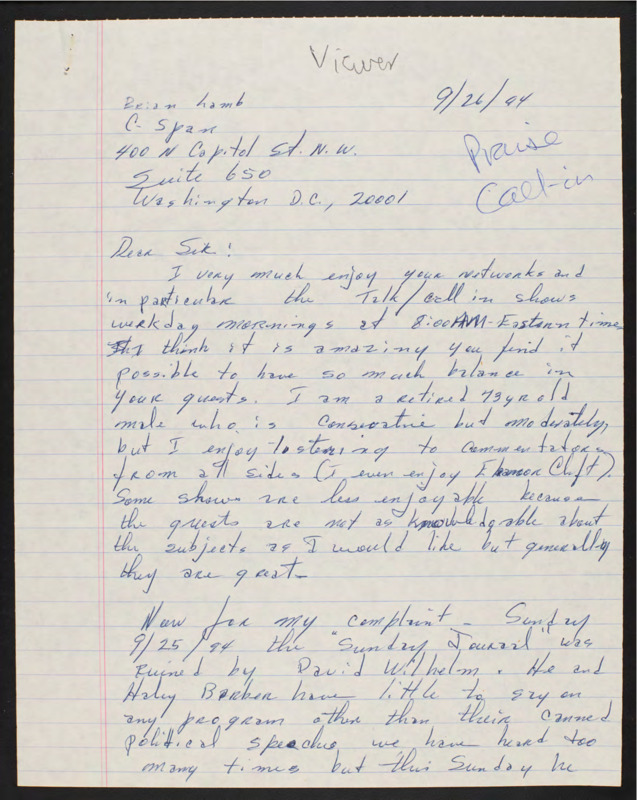 Viewer
Brian Lamb
9/26/94
C-Span
400 N Capitol St. N.W.
Praise
Suite 650
Call-in
Washington D.C., 20001
Dear Sir:
I very much enjoy your networks and
in particular the Talk/call in shows
weekday mornings at 8:00AM-Eastern time.
I think it is amazing you find it
possible to have so much balance in
your guests. I am a retired 73 yr old
male who is conservative but moderately,
but I enjoy listening to commentators
from all sides (I even enjoy Eleanor Clift).
Some shows are less enjoyable because
the guests are not as knowledgable about
the subjects as I would like but generally
they are great-
Now for my complaint - Sunday
9/25/94 the "Sunday Journal" was
ruined by David Wilhelm. He and
Haley Barber have little to say on
any program other than their canned
political speeches we have heard too
many times but this Sunday he